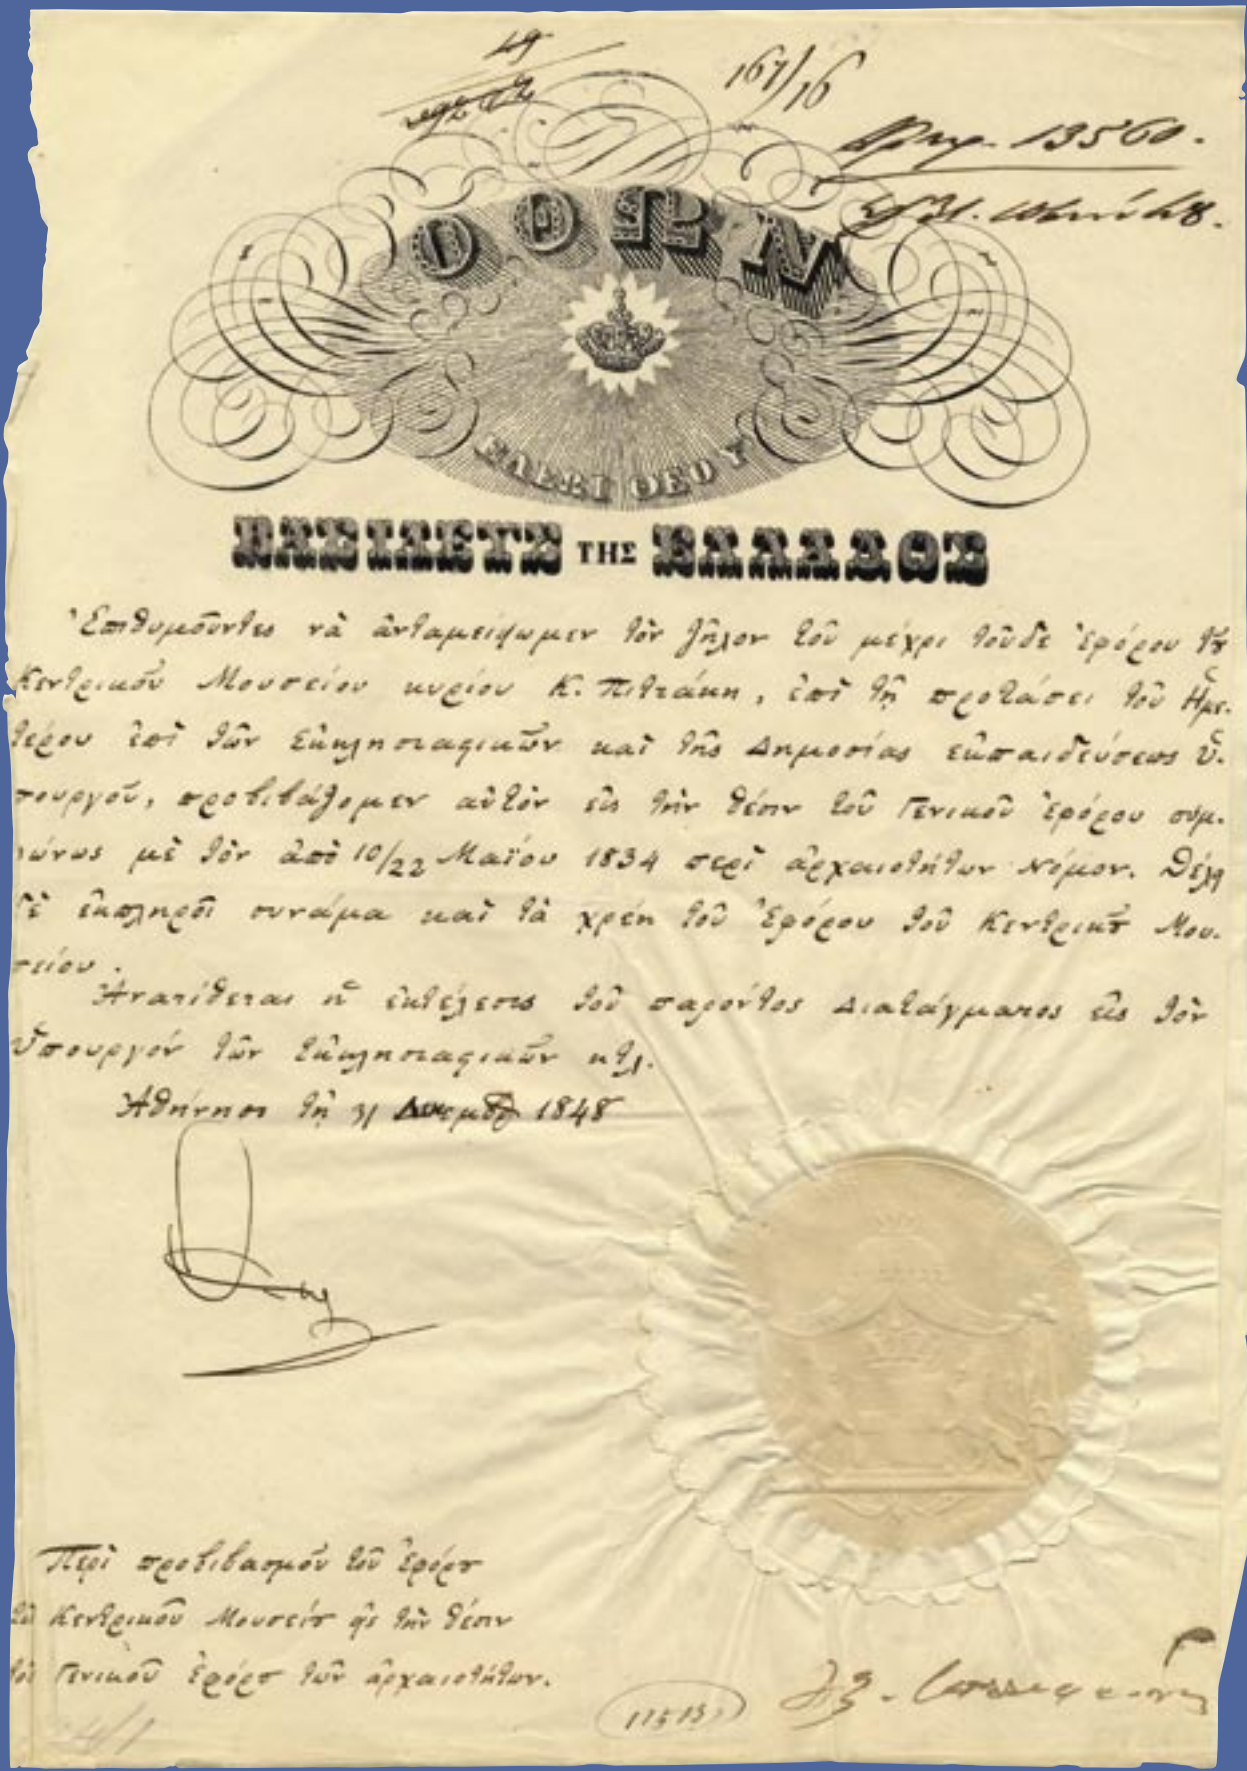 49
167/16
Πρωτ. 13560.
ΟΘΩΝ
ΕΛΕΩι ΘΕΟΥ
ΒΑΣΙΛΕΥΣ ΤΗΣ ΕΛΛΑΔΟΣ
Ἐπιθυμοῦντες νὰ ἀνταμείψωμεν τὸν ζῆλον τοῦ μέχρι τοῦδε Ἐφόρου τȣ͂
Κεντρικοῦ Μουσείου κυρίου Κ. Πιττάκη, ἐπὶ τῇ προτάσει τοῦ Ἡμε-
τέρου ἐπὶ τῶν Ἐκκλησιαστικῶν καὶ τῆς Δημοσίας ἐκπαιδεύσεως Ὑ-
πουργοῦ, προβιβάζομεν αὐτὸν εἰς τὴν θέσιν τοῦ Γενικοῦ Ἐφόρου συμ-
φώνως μὲ τὸν ἀπὸ 10/22 Μαΐου 1834 περὶ ἀρχαιοτήτων Νόμον. Θέλει
δὲ ἐκπληροῖ συνάμα καὶ τὰ χρέη τοῦ Ἐφόρου τοῦ Κεντρικȣ͂ Μου-
σείου.
Ἀνατίθεται ἡ ἐκτέλεσις τοῦ παρόντος Διατάγματος εἰς τὸν
Ὑπουργόν τῶν Ἐκκλησιαστικῶν κτλ.
Ἀθήνησι τῇ 31 1848
Περὶ προβιβασμοῦ τοῦ Ἐφόρȣ
τοῦ Κεντρικοῦ Μουσείȣ εἰς τὴν θέσιν
τοῦ Γενικοῦ Ἐφόρȣ τῶν ἀρχαιοτήτων.